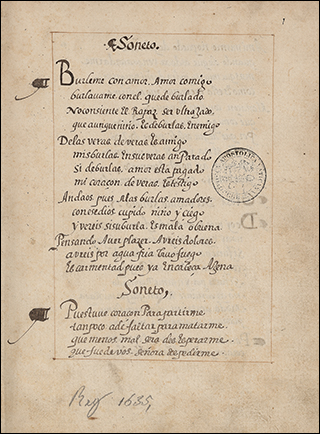 1
Soneto.
Burleme con amor. Amor comigo
burlauame con el. quede burlado.
No consiente El Rapaz ser ultrazado,
que aunque niño. Es de burlas, Enemigo
De las veras de veras Es amigo
mis burlas. En sus veras an Parado
Si de burlas, amor esta pagado
mi coraçon de veras. Es testigo
Andaos pues. A las burlas. amadores.
con se dios cupido niño y ciego
y vereis si su burla. Es mala o buena
Pensando Auer plazer. Aureis dolores.
aureis por agua fria
Escarmentad pues ya En cabeça Agena
Soneto,
Pues tuue coraçon Para partirme
tanpoco a de faltar para matarme.
que menos mal sera de
que fue de vos. Señora despedirme.
Reg 1635,